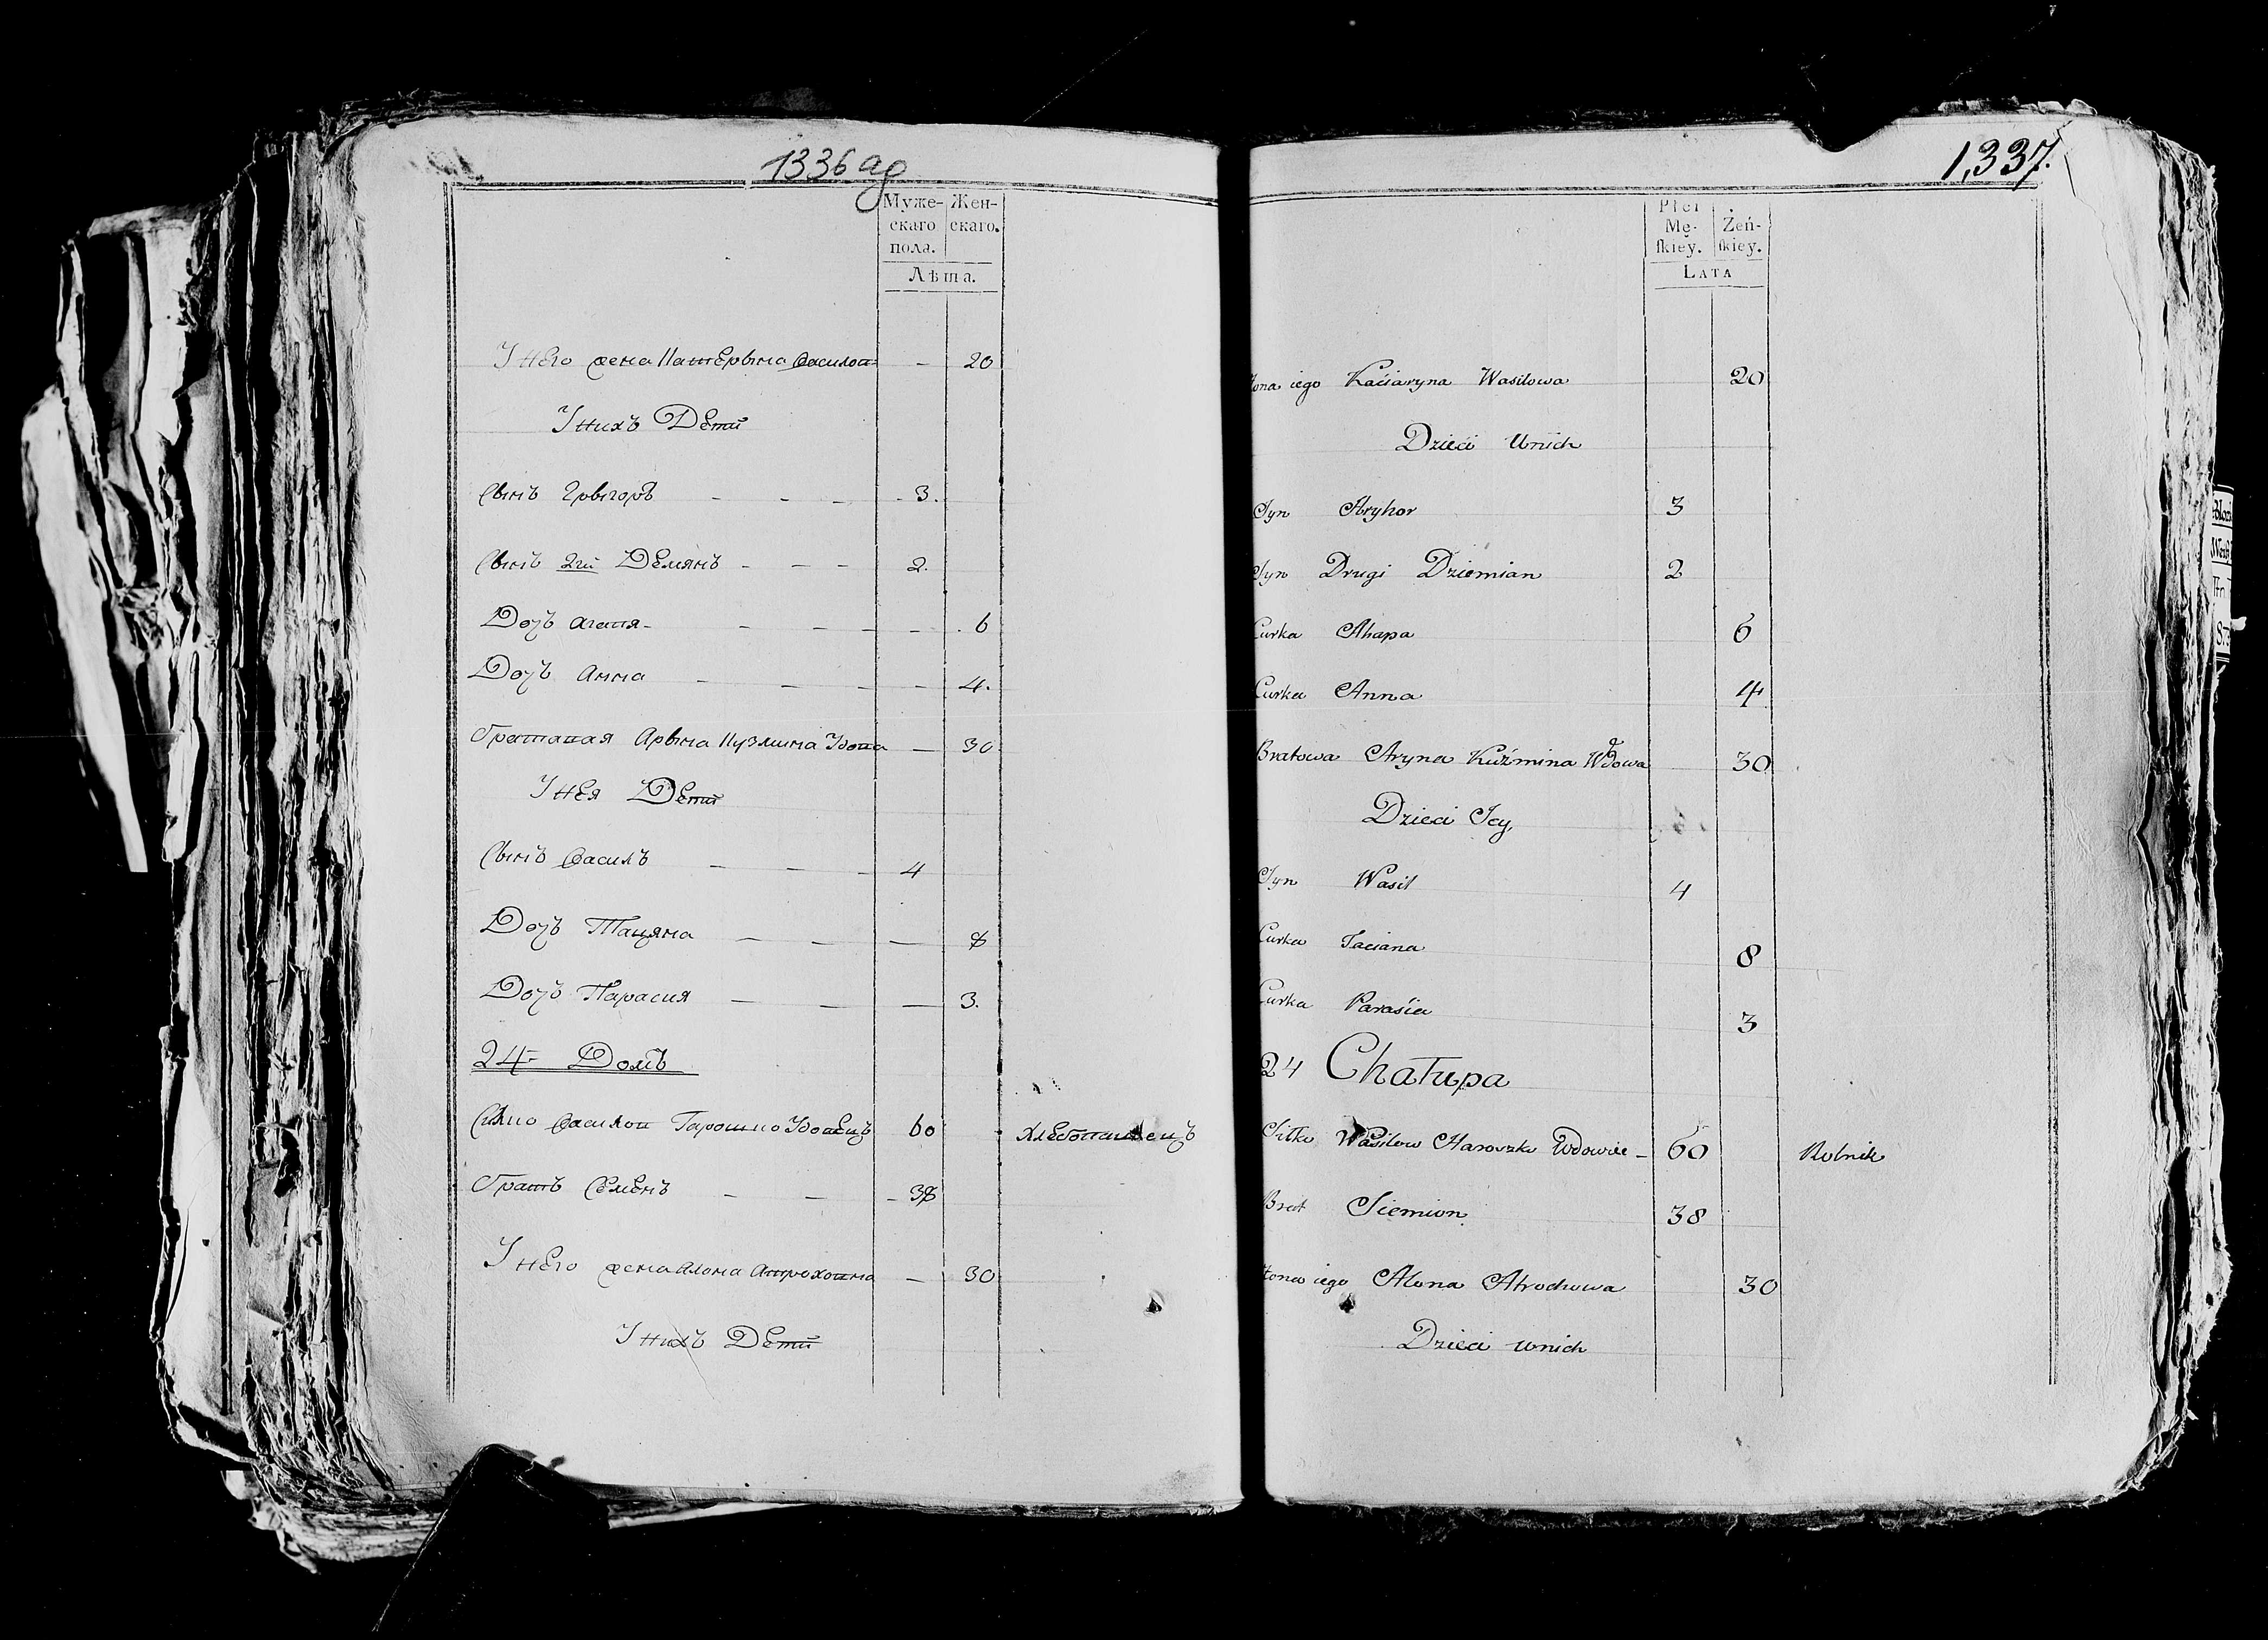 1336 ag
Муже-
скаго
пола.
Жен-
скаго.
Лѣта.
У Него жена Катерына Васил 20
У нихъ Дети
Сынъ Грыгоръ 3.
Сынъ 2й Демянъ 2.
Дочь Агапя 6
Дочь Анна 4.
Братавая Арына Кузмина Удова 30
У нея Дети
Сынъ Василъ 4
Дочь Тацяна 8
Дочь Парасия 3.
24 Домъ
Василов Гарошко Удовецъ 60 Хлебопашецъ
Братъ Семенъ 38
У Него жена Алона 30
У нихъ Дети
1,337.
Płci
Mę-
ſkiey.
Żeń-
ſkiey.
LATA
Żona iego Kaciaryna Wasilowa 20
Dzieci Unich
Syn Hryhor 3
Syn Drugi Dziemian 2
Curka Ahapa 6
Curka Anna 4
Bratowa Aryna Kuźmina Wdowa 30
Dzieci Jey
Syn Wasil 4
Curka Taciana 8
Curka Parasia 3
24 Chałupa
Wasilow Haroszko Wdowiec 60 Rolnik
Brat Siemion 38
Żona iego Alona Atrochowa 30
Dzieci unich